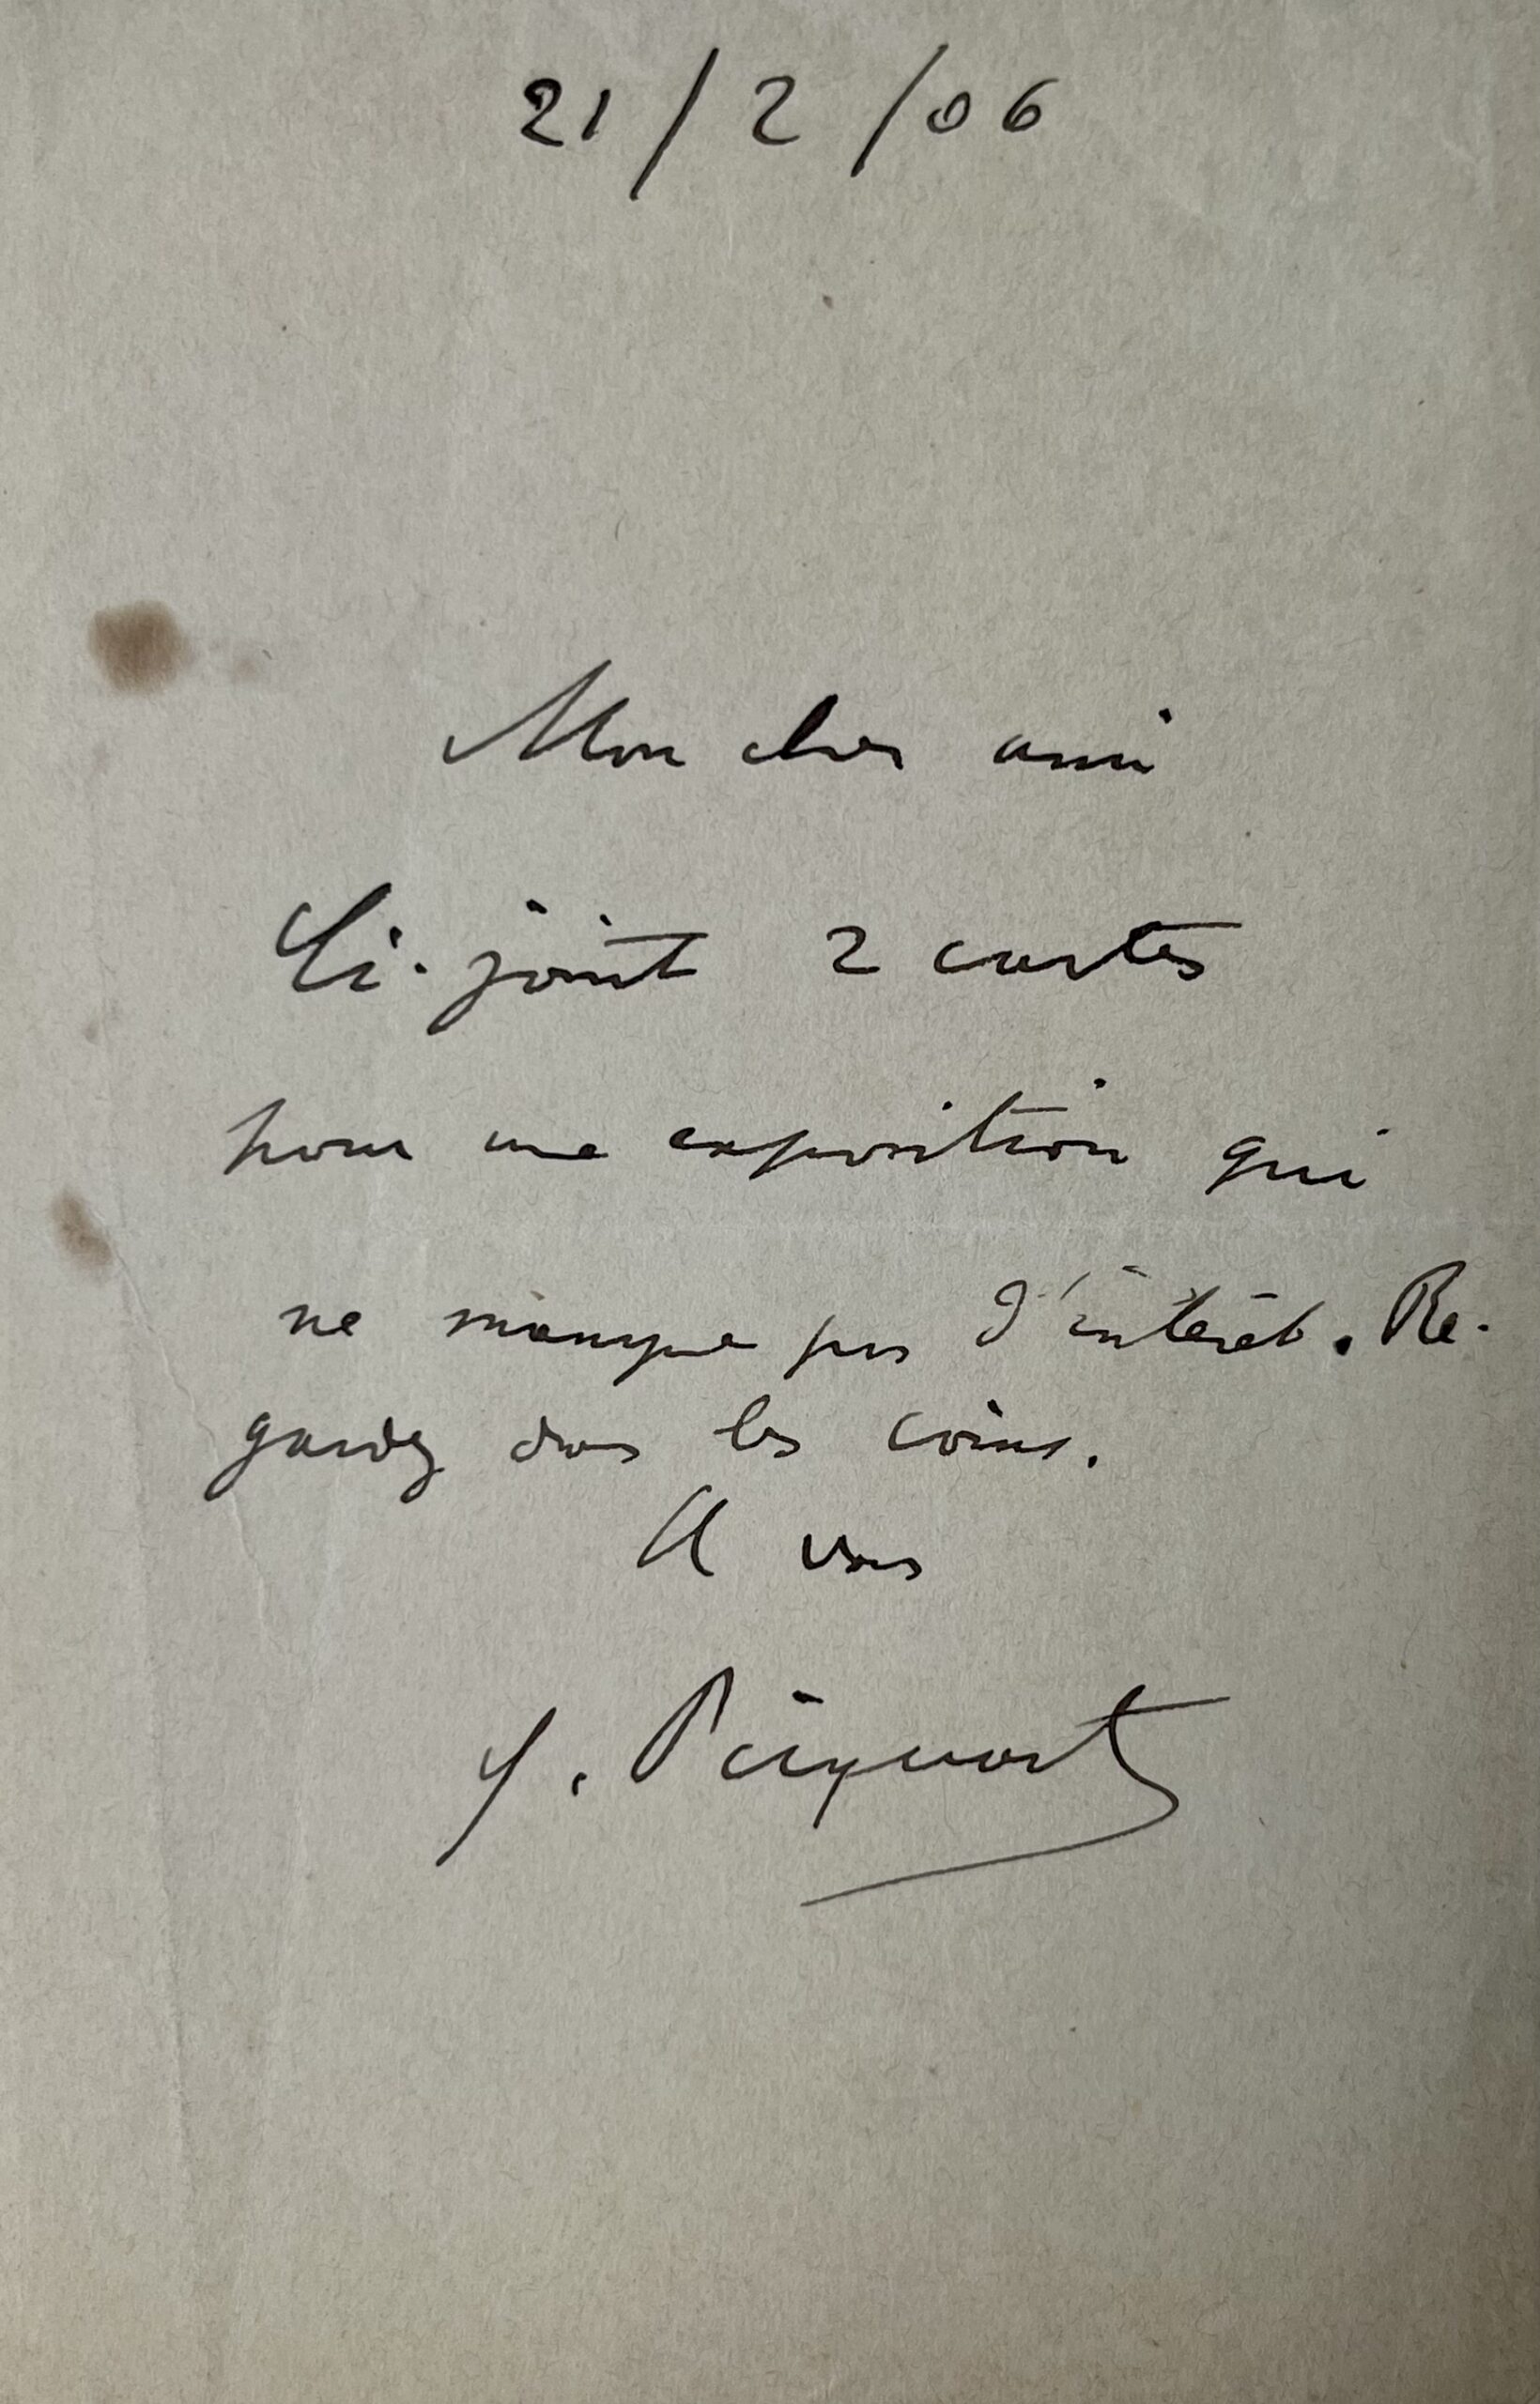 21/2/06
Mon cher ami
Ci-joint 2 cartes
pour une exposition qui
ne manque pas d'intérêt. Re-
gardez dans les coins.
A vous
G. Picquart